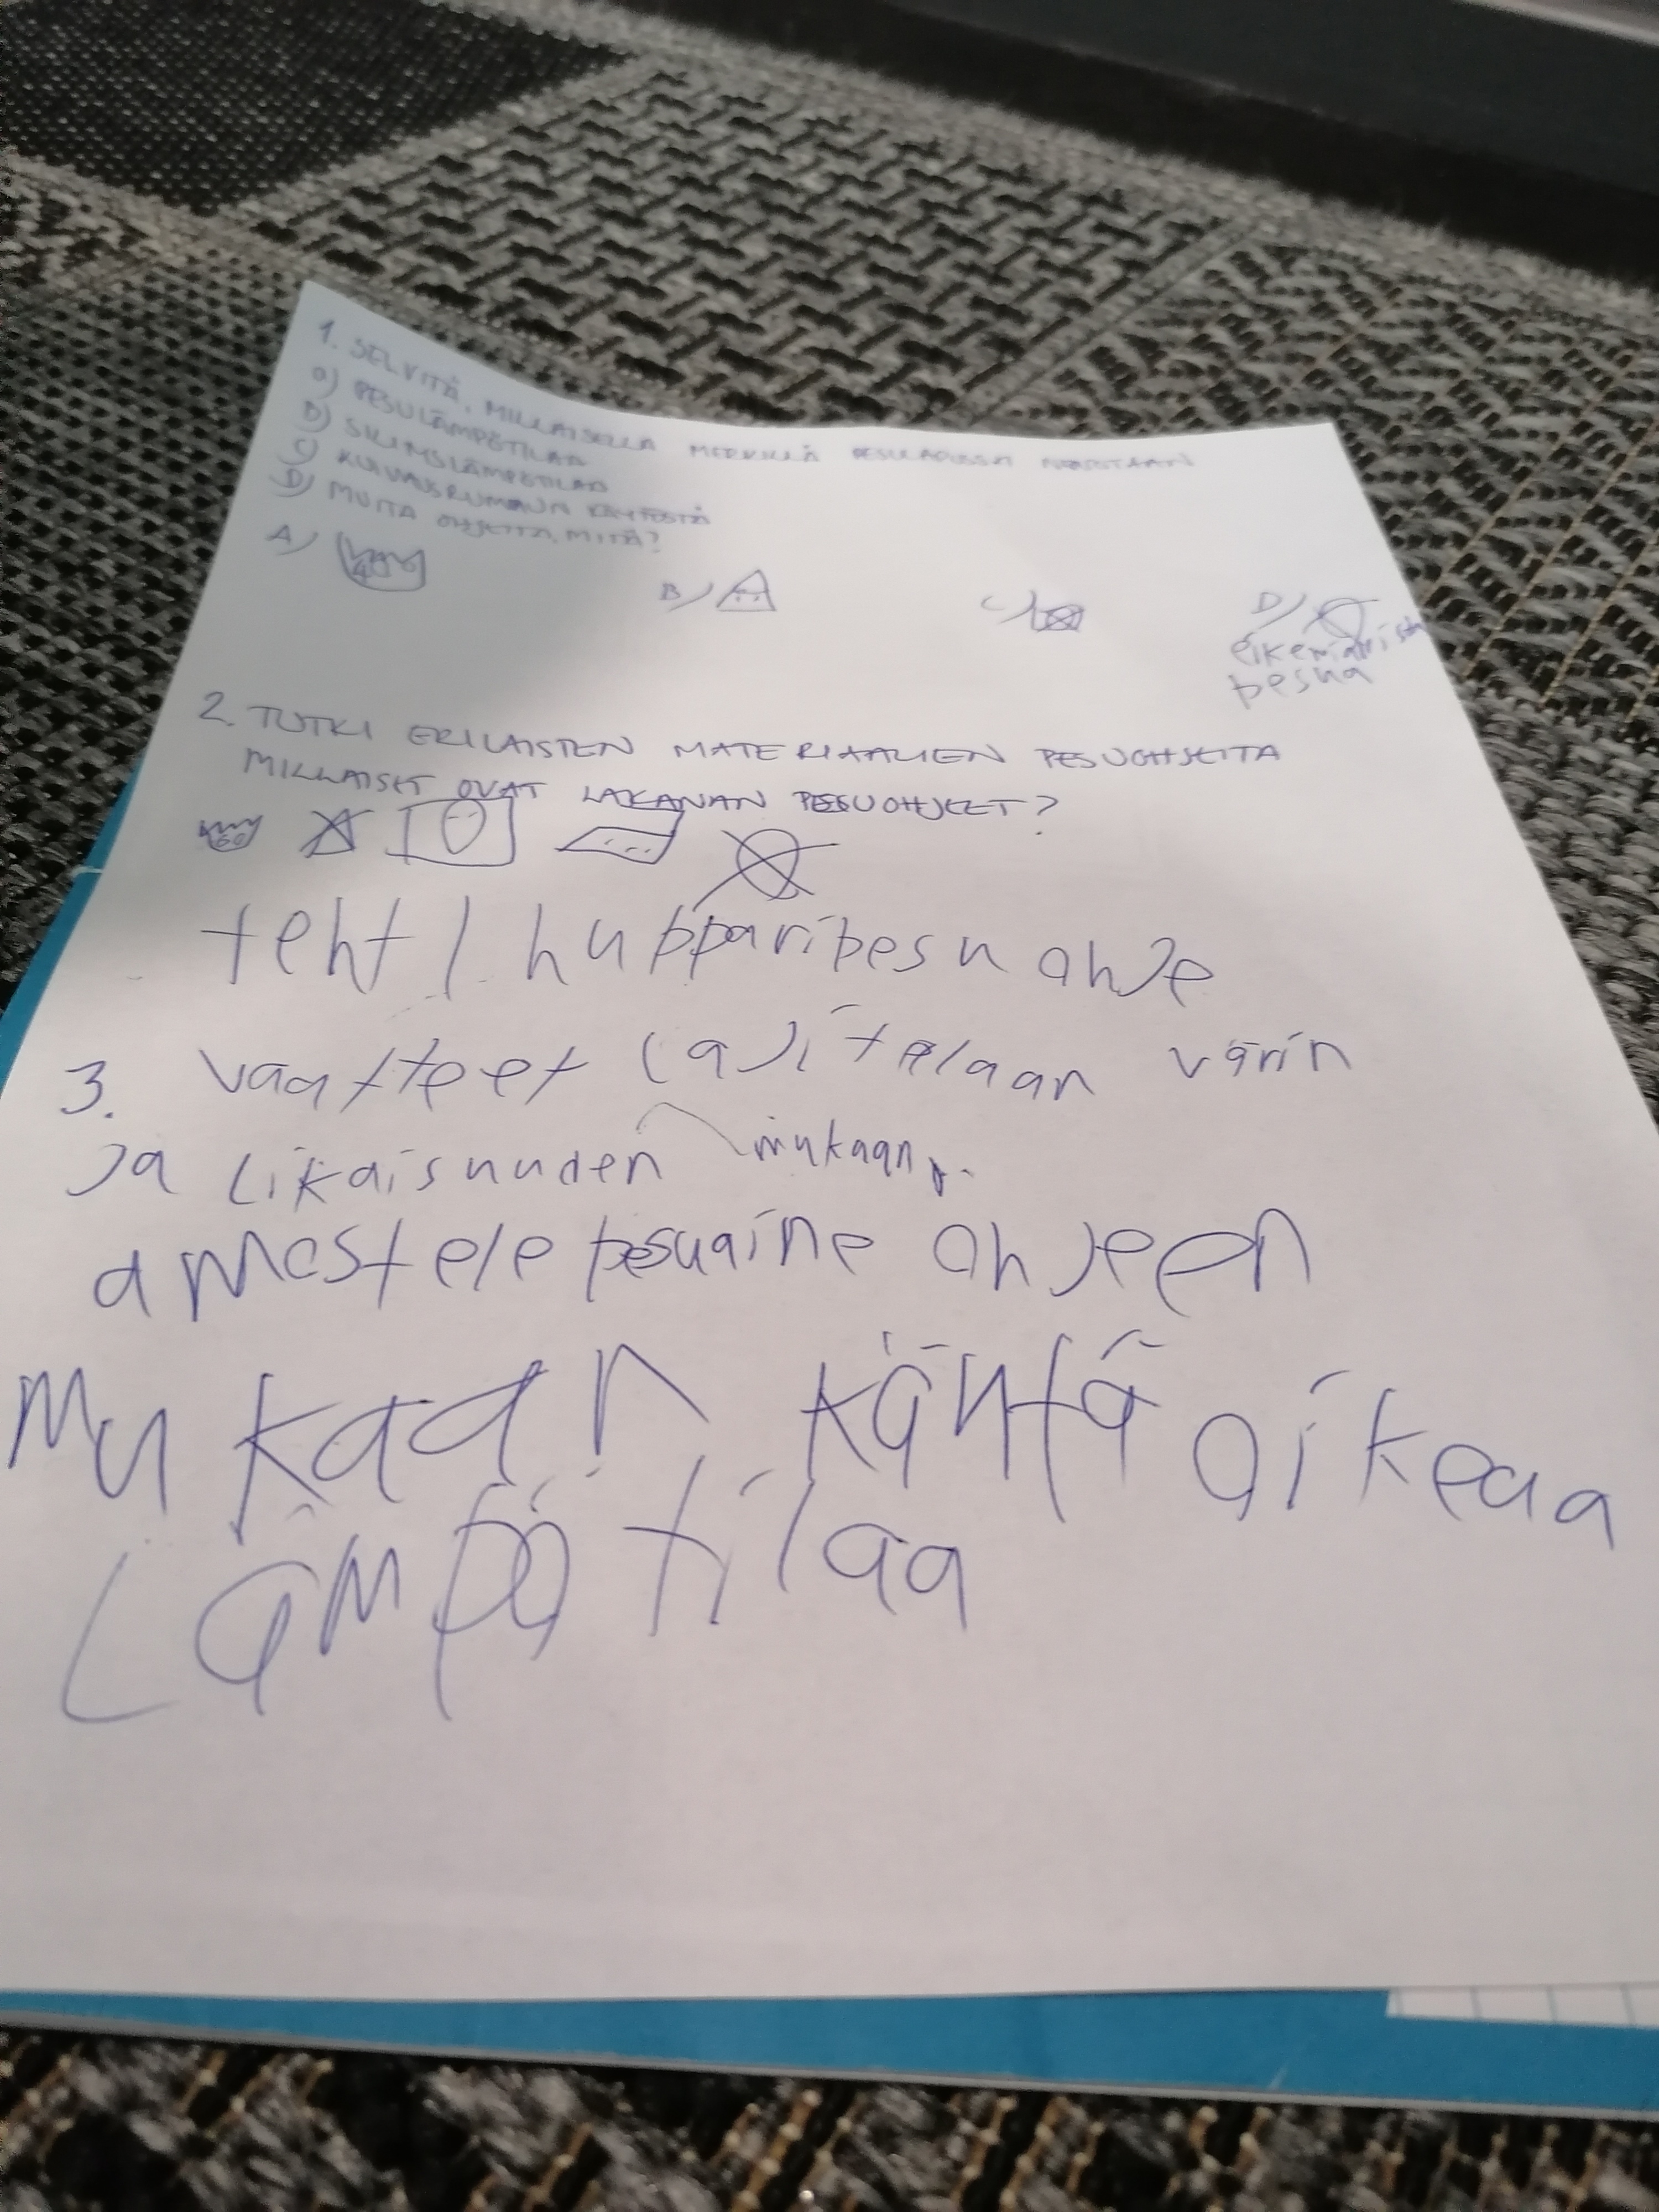 1. SELVITÄ, MILLAISELLA MERKILLÄ PESULAPUSSA
a) PESULÄMPÖTILAA
B) SILITYSLÄMPÖTILAA
C) KUIVAUSRUMMUN KÄYTÖSTÄ
D) MUITA OHJEITA, MITÄ?
A) B) C) D)
ei kemiallista
pesua
2. TUTKI ERILAISTEN MATERIAALIEN PESUOHJEITA
MILLAISET OVAT LAKANAN PESUOHJEET?
60
teht 1 hupparipesu ohje
3. vaatteet lajitelaan värin
ja likaisuuden mukaan.
annostele pesuaine ohjeen
mukaan käytä oikeaa
Lämpötilaa